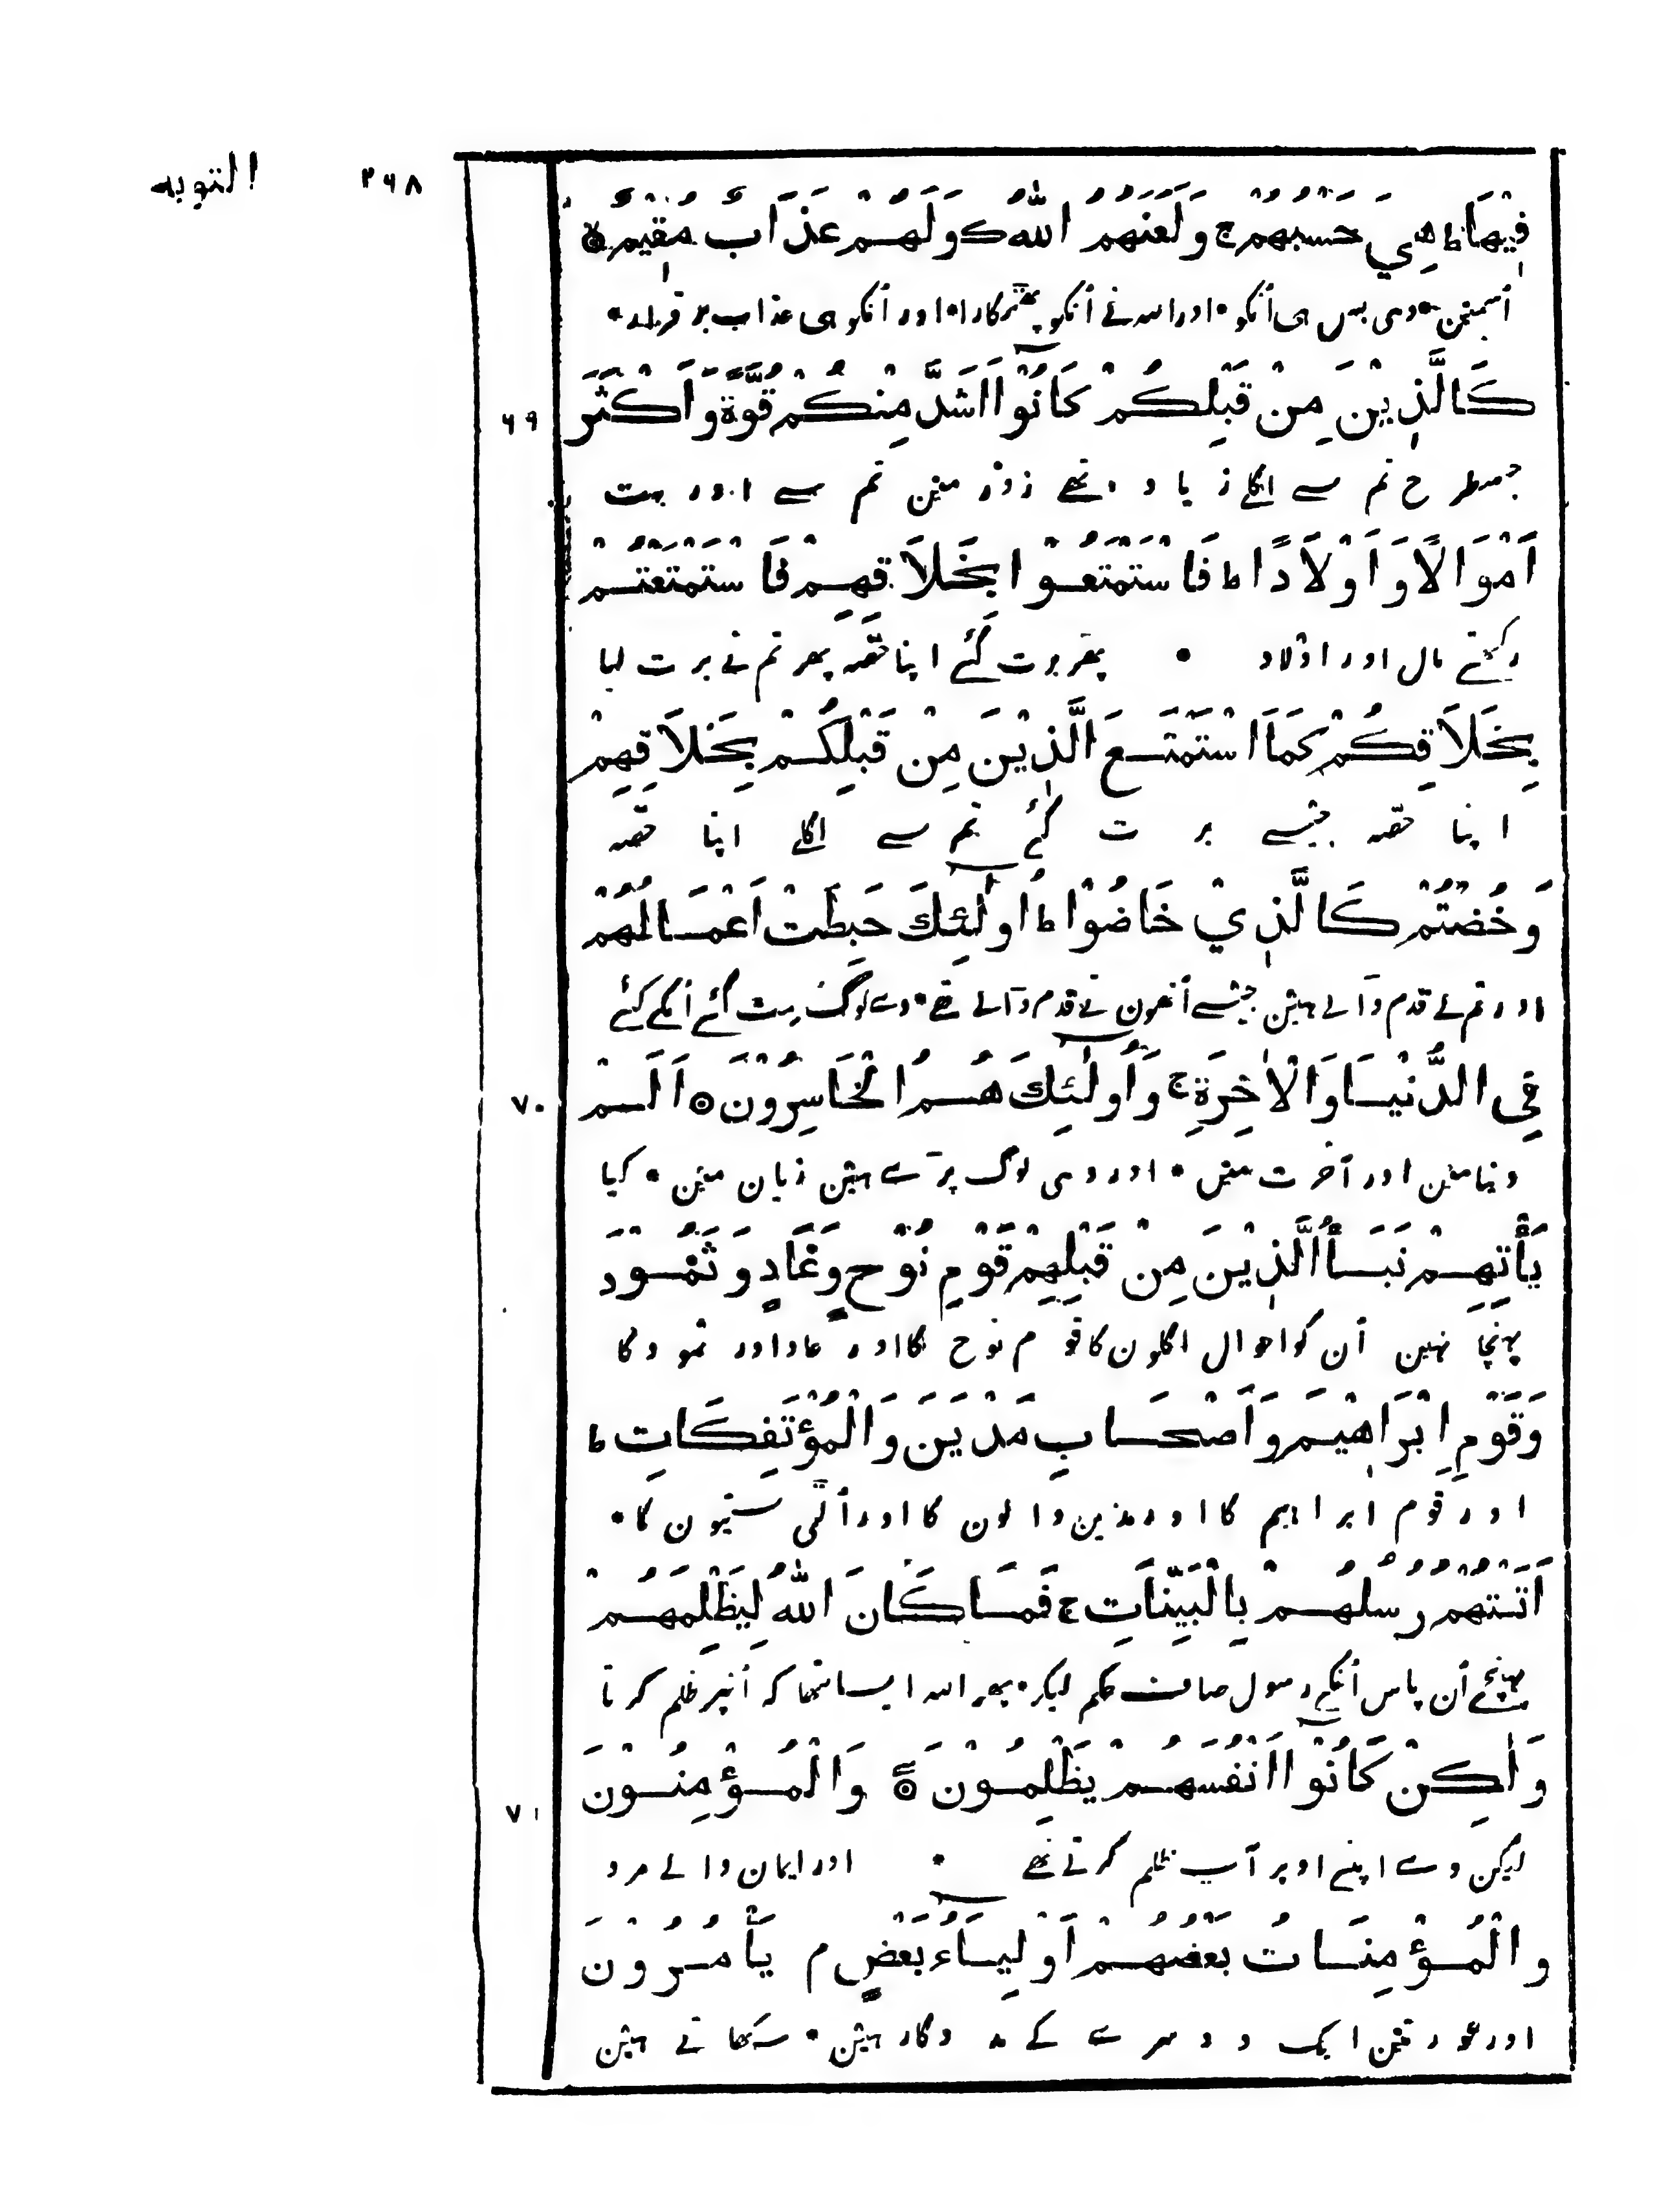 التوبه ۲۶۸
فِيْهَا ط هِيَ حَسْبُهُمْ ج وَلَعَنَهُمُ اللّٰهُ ک وَلَهُمْ عَذَابٌ مُقِيْمٌ ۙ
أسمین • وہی بس ہی أنکو • اور اللہ نے أنکو پھٹکارا • اور أنکو ہی عذاب برقرار •
۶۹ كَالَّذِيْنَ مِنْ قَبْلِكُمْ كَانُوْۤا اَشَدَّ مِنْكُمْ قُوَّةً وَّاَكْثَرَ
جسطرح تم سے اگلے زیادہ تھے زور مین تم سے اور بہت
اَمْوَالًا وَاَوْلَادًا ط فَاسْتَمْتَعُوْا بِخَلَاقِهِمْ فَاسْتَمْتَعْتُمْ
رکھتے مال اور اولاد • پھر برت گئے اپنا حصہ پھر تم نے برت لیا
بِخَلَاقِكُمْ كَمَا اسْتَمْتَعَ الَّذِيْنَ مِنْ قَبْلِكُمْ بِخَلَاقِهِمْ
اپنا حصہ جیسے برت گئے تم سے اگلے اپنا حصہ
وَخُضْتُمْ كَالَّذِيْ خَاضُوْا ط اُولٰۤئِكَ حَبِطَتْ اَعْمَالُهُمْ
اور تم نے قدم ڈالے ہین جیسے أنھون نے قدم ڈالے تھے • وے لوگ مت گئے أنکے کئے
۷۰ فِى الدُّنْيَا وَالْاٰخِرَةِ ج وَاُولٰۤئِكَ هُمُ الْخَاسِرُوْنَ ۞ اَلَمْ
دنیا مین اور آخرت مین • اور وہی لوگ پڑے ہین زیان مین • کیا
يَأْتِهِمْ نَبَأُ الَّذِيْنَ مِنْ قَبْلِهِمْ قَوْمِ نُوْحٍ وَّعَادٍ وَثَمُوْدَ
پہنچا نہین أن کو احوال اگلون کا قوم نوح کا اور عاد اور ثمود کا
وَقَوْمِ اِبْرَاهِيْمَ وَاَصْحَابِ مَدْيَنَ وَالْمُؤْتَفِكَاتِ ط
اور قوم ابراہیم کا اور مدین والون کا اور ألٹی بستیون کا •
اَتَتْهُمْ رُسُلُهُمْ بِالْبَيِّنَاتِ ج فَمَا كَانَ اللّٰهُ لِيَظْلِمَهُمْ
پہنچے أن پاس أنکے رسول صاف حکم لیکر • پھر اللہ ایسا نتھا کہ أنپر ظلم کرتا
۷۱ وَلٰكِنْ كَانُوْۤا اَنْفُسَهُمْ يَظْلِمُوْنَ ۞ وَالْمُؤْمِنُوْنَ
لیکن وے اپنے اوپر آپ ظلم کرتے تھے • اور ایمان والے مرد
وَالْمُؤْمِنَاتُ بَعْضُهُمْ اَوْلِيَآءُ بَعْضٍ م يَأْمُرُوْنَ
اور عورتین ایک دوسرے کے مددگار ہین • سکھاتے ہین